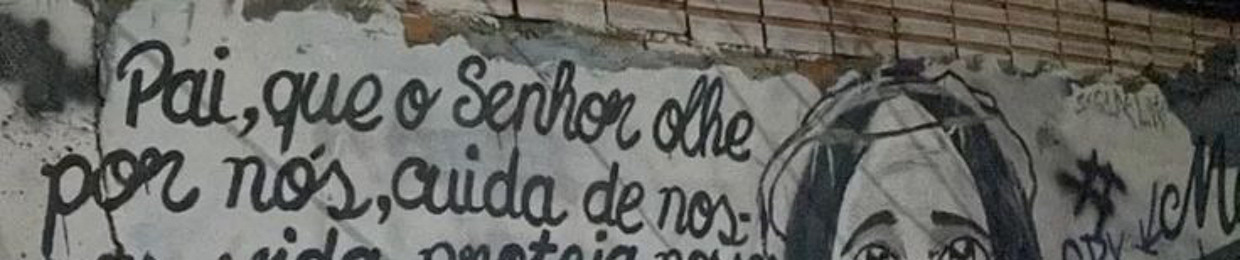 Pai, que o Senhor olhe
por nós, cuida de nos-
vida proteja